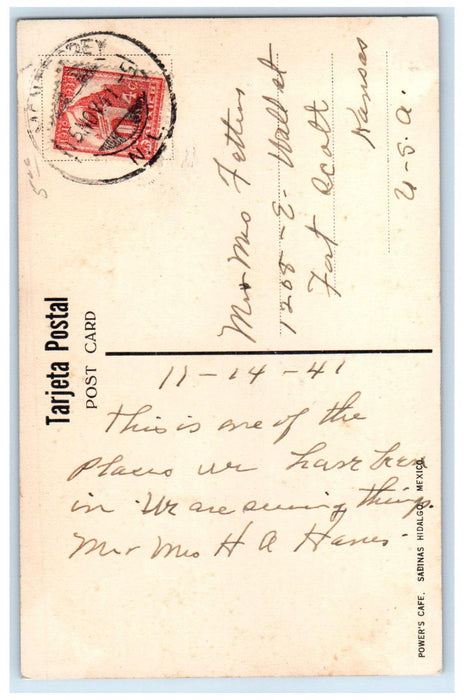 MONTERREY
15 NOV 41
N.L.
4 c
5 00
Mr + Mrs Fetters
1208 - E - Wall st
Fort Scott
Kansas
U-S.A.
Tarjeta Postal
POST CARD
11-14-41
This is one of the
places we have been
in We are seeing things.
Mr + Mrs H A
POWER'S CAFE, SABINAS HIDALGO, MEXICO